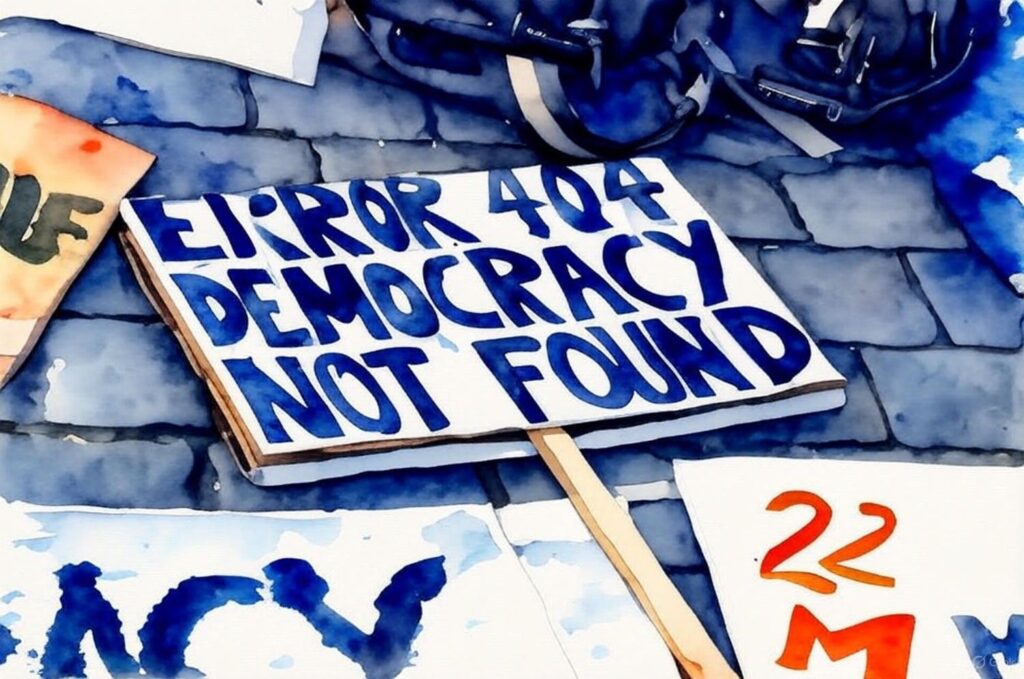 ERROR 404
DEMOCRACY
NOT FOUND
ACY
22
M